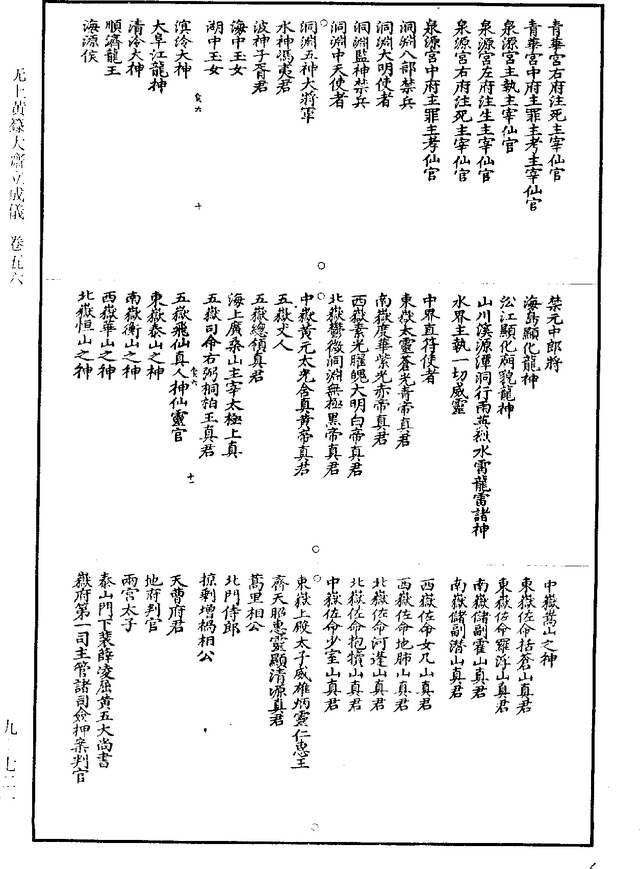 青華宮右府注死主宰仙官
青華宮中府主罪主考主宰仙官
泉源宮主執主宰仙官
泉源宮左府注生主宰仙官
泉源宮右府注死主宰仙官
泉源宮中府主罪主考仙官
洞淵八部禁兵
洞淵大明使者
洞淵監神禁兵
洞淵中天使者
洞淵五神大將軍
水神馮夷君
波神子胥君
海中玉女
湖中玉女
滨泠大神
大阜江龍神
清泠大神
順濟龍王
海源侯
禁元中郎將
海島顯化龍神
沿江顯化廟貌龍神
山川溪源潭洞行雨英烈水霄龍雷諸神
水界主執一切威靈
中界直符使者
東嶽太靈蒼光青帝真君
南嶽慶華紫光赤帝真君
西嶽素光耀魄大明白帝真君
北嶽鬱微洞淵無極黑帝真君
中嶽黃元太光含真黃帝真君
五嶽丈人
五嶽總領真君
海上廣桑山主宰太極上真
五嶽司命右弼桐柏王真君
五嶽飛仙真人神仙靈官
東嶽泰山之神
南嶽衡山之神
西嶽華山之神
北嶽恒山之神
中嶽嵩山之神
東嶽佐命括蒼山真君
東嶽佐命羅浮山真君
南嶽儲副霍山真君
南嶽儲副潛山真君
西嶽佐命女几山真君
西嶽佐命地肺山真君
北嶽佐命河逢山真君
北嶽佐命抱犢山真君
中嶽佐命少室山真君
東嶽上殿太子威雄炳靈仁惠王
齊天昭惠靈顯清源真君
蒿里相公
北門侍郎
掠剩增禍相公
天曹府君
地府判官
兩宮太子
泰山門下裴薛凌屈黃五大尚書
嶽府第一司主管諸司僉押案判官
无上黄籙大齋立成儀 卷五六
九 七二一